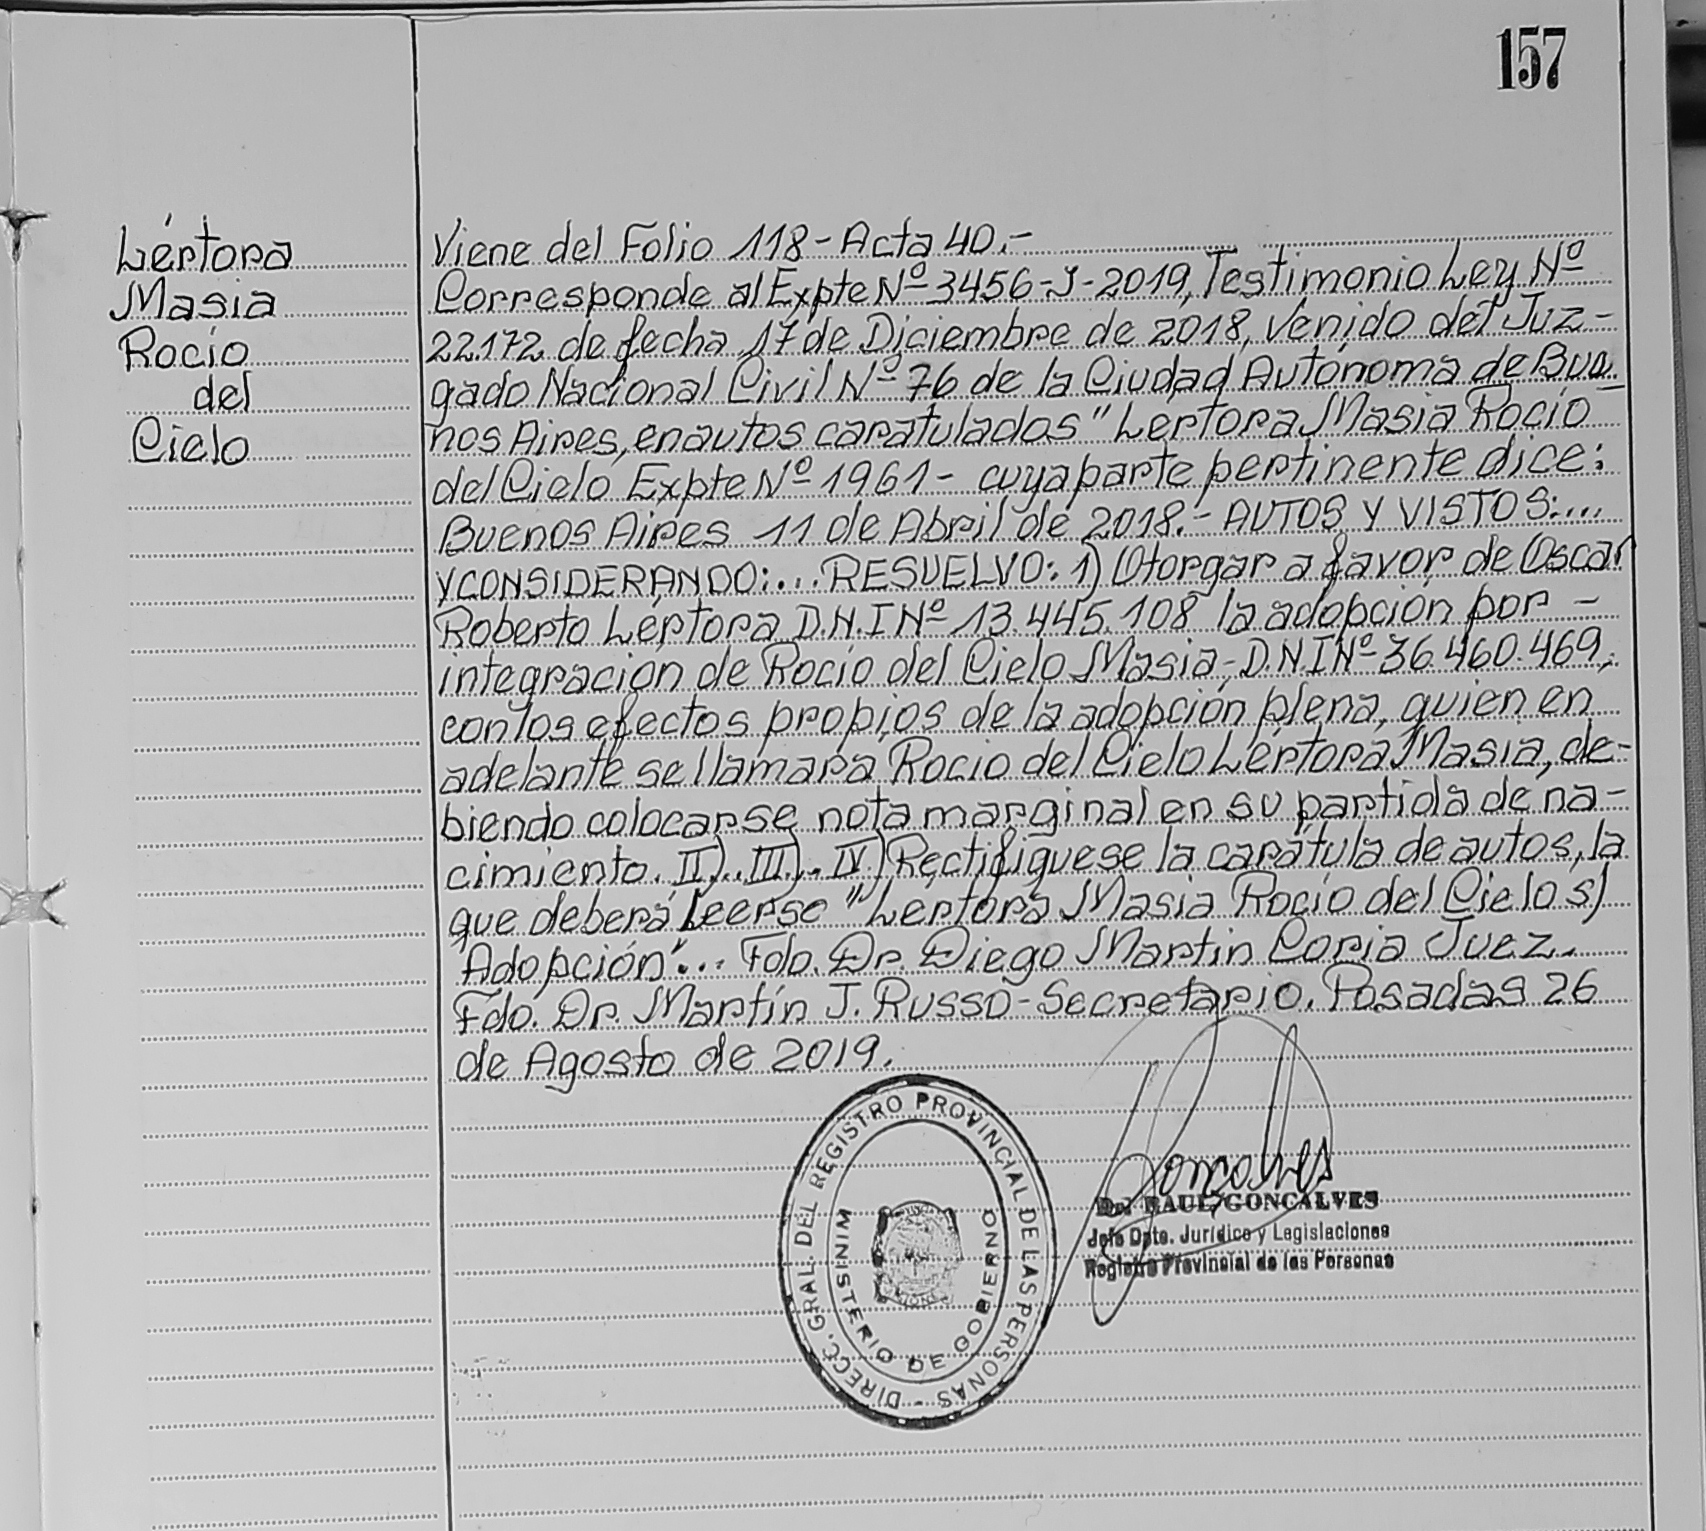 157
Lértora
Masia
Rocío
del
Cielo
Viene del Folio 118 - Acta 40.-
Corresponde al Expte Nº 3456-J-2019, Testimonio Ley Nº
22.172 de fecha 17 de Diciembre de 2018, venido del Juz-
gado Nacional Civil Nº 76 de la Ciudad Autónoma de Bue-
nos Aires, en autos caratulados " Lertora Masia Rocío
del Cielo Expte Nº 1961 - cuya parte pertinente dice:
Buenos Aires 11 de Abril de 2018.- AUTOS Y VISTOS:....
Y CONSIDERANDO:... RESUELVO: 1) Otorgar a favor de Oscar
Roberto Lértora D.N.I Nº 13.445.108 la adopción por -
integración de Rocío del Cielo Masia, D.N.I Nº 36.460.469,
con los efectos propios de la adopción plena, quien en
adelante se llamará Rocío del Cielo Lértora Masia, de-
biendo colocarse nota marginal en su partida de na-
cimiento. II)..III)..IV) Rectifíquese la carátula de autos, la
que deberá leerse "Lertora Masia Rocío del Cielo s/
Adopción"... Fdo. Dr. Diego Martin Coria Juez..
Fdo. Dr. Martín J. Russo - Secretario. Posadas 26
de Agosto de 2019.
DIRECC. GRAL. DEL REGISTRO PROVINCIAL DE LAS PERSONAS -
MINISTERIO DE GOBIERNO
Goncalves
Dr. RAUL GONCALVES
Jefe Dpto. Jurídico y Legislaciones
Registro Provincial de las Personas